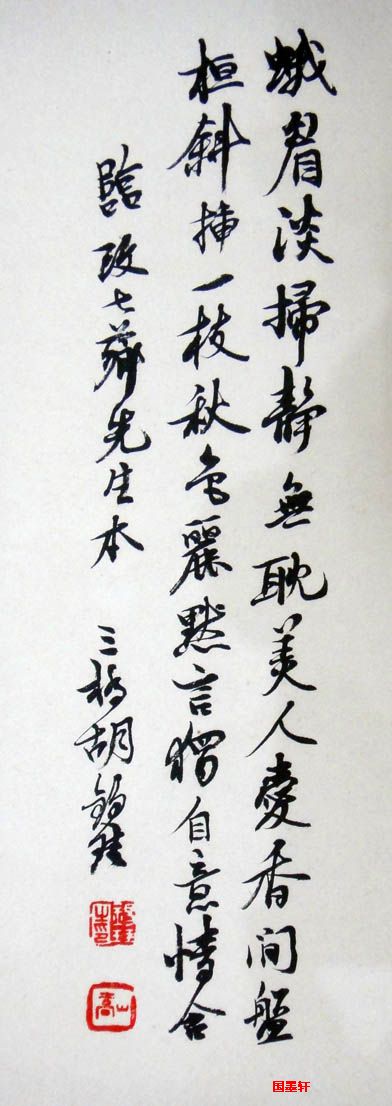 蛾眉淡掃靜無耽美人愛香间盤
桓斜插一枝秋色麗默言獨自意情含
臨改七薌先生本
三橋胡錫珪
国墨轩